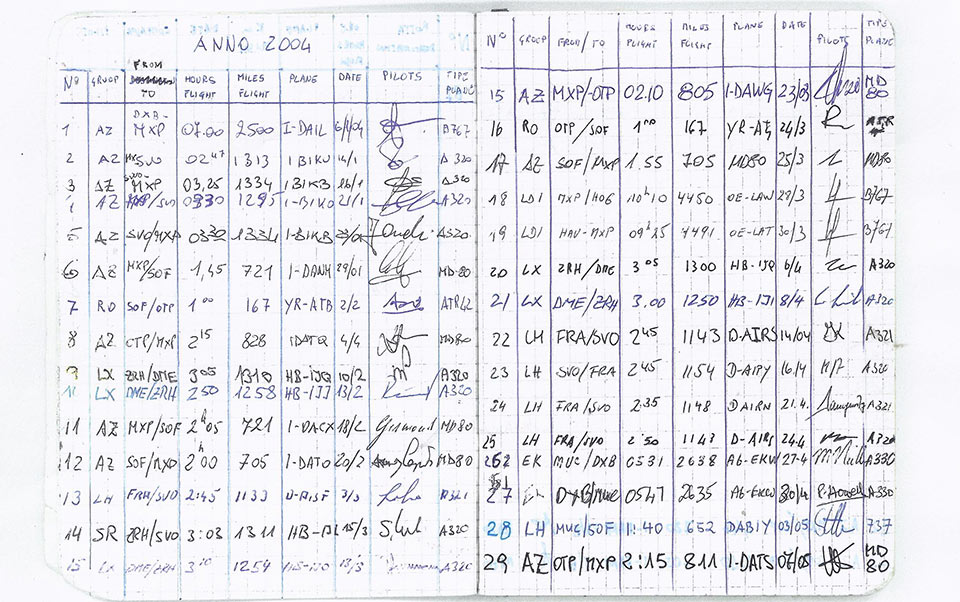 ANNO 2004
Nº GROUP FROM TO HOURS FLIGHT MILES FLIGHT PLANE DATE PILOTS TIPE PLANE
1 AZ DXB-MXP 07.00 2500 I-DAIL B767
2 AZ /SVO 02 47 1313 I BIKU 14/1 A320
3 AZ MXP 03,25 1334 I BIKB A320
AZ /SVO 1295 I-BIKO 21/1 A320
5 AZ SVO/MXP 1334 I-BIKB A320
6 AZ MXP/SOF 1,45 721 I-DANM 29/01 MD-80
7 RO SOF/OTP 1 00 167 YR-ATB 2/2 ATR42
8 AZ OTP/MXP 2 15 828 IDATQ 4/4 MD80
9 LX ZRH/DME 3 05 1310 HB-IJQ 10/2 A320
LX DME/ZRH 2 50 1258 HB-IJJ 13/2 A320
11 AZ MXP/SOF 2 h 05 721 I-DACX 18/2 MD80
12 AZ SOF/MXP 2 h 00 705 I-DATO 20/2 MD80
13 LH FRA/SVO 2:45 1133 3/3 A321
14 SR ZRH/SVO 3:03 1311 15/3 A320
15 LX DME/ZRH 3 10 1254 A320
Nº GROUP FROM/TO HOURS FLIGHT MILES FLIGHT PLANE DATE PILOTS TIPE PLANE
15 AZ MXP/-OTP 02.10 805 I-DAWG 23/03 MD 80
16 RO OTP/SOF 1 00 167 24/3 ATR
17 AZ SOF/MXP 1.55 705 MD80 25/3 MD80
18 LDI MXP/HOG 10 h 10 4450 OE-LAW B767
19 LDI HAV-MXP 4491 OE-LAT 30/3 B767
20 LX ZRH/DME 3 05 1300 HB-IJQ 6/4 A320
21 LX DME/ZRH 3.00 1250 HB-IJI 8/4 A320
22 LH FRA/SVO 2 45 1143 D-AIRS 14/04 A321
23 LH SVO/FRA 2 45 1154 D-AIPY 16/4 A320
24 LH FRA/SVO 2.35 1148 DAIRN 21.4. A321
25 LH FRA/SVO 2:50 1143 D-AIRS 24.4
EK MUC/DXB 0531 2638 A6-EKV 27-4 A330
27 DXB/MUC 0547 2635 30/4 A330
28 LH MUC/SOF 1:40 652 DABIY 03/05 737
29 AZ OTP/MXP 2:15 811 I-DATS 07/05 MD 80